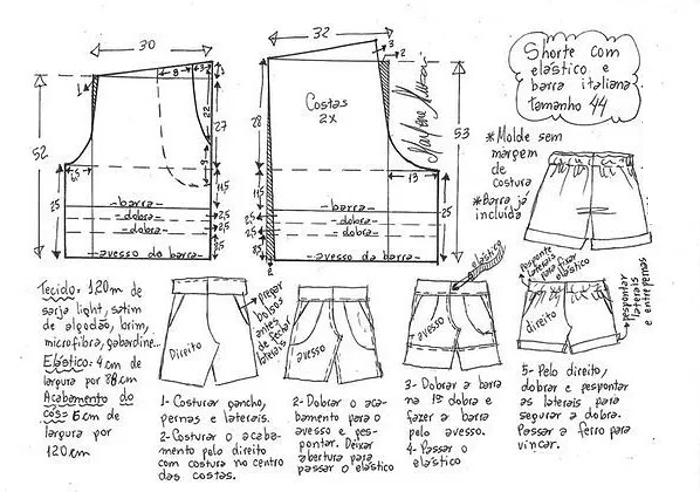 Shorte com
elástico e
barra italiana
tamanho 44
*Molde sem
margem
de
costura
*Barra já
incluída
30
1
8
3
2
1
52
22
27
9
6,5
11,5
25
2,5
2,5
2,5
-barra-
-dobra-
-dobra-
-avesso da barra-
32
3
2
Costas
2x
28
53
13
11,5
25
25
25
2
-barra-
-dobra-
-dobra-
-avesso da barra-
Tecido: 1,20m de
sarja light, satim
de algodão, brim,
microfibra, gabardine...
Elástico: 4 cm de
largura por 88cm
Acabamento do
cós= 6cm de
largura por
120cm
Direito
Prepar
bolsos
antes
de fechar
laterais
1- Costurar gancho,
pernas e laterais.
2- Costurar o acaba-
mento pelo direito
com costura no centro
das costas.
avesso
2- Dobrar o aca-
bamento para o
avesso e pes-
pontar. Deixar
abertura para
passar o elástico
elástico
avesso
3- Dobrar a barra
na 1ª dobra e
fazer a barra
pelo avesso.
4- Passar o
elástico
Pesponte
laterais
para fixar
elástico
direito
pespontar
laterais
e entrepernas
5- Pelo direito,
dobrar e pespontar
as laterais para
segurar a dobra.
Passar a ferro para
vincar.